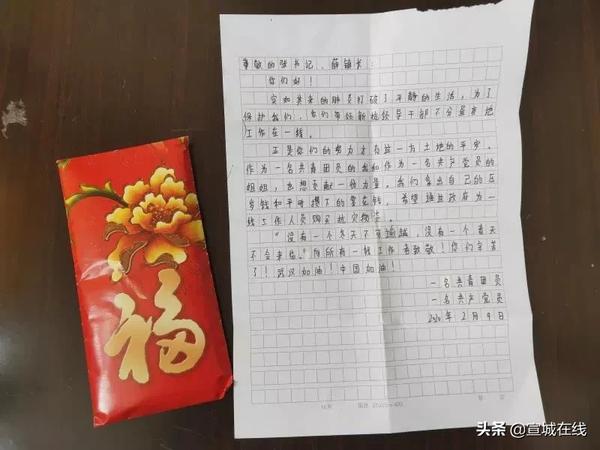 尊敬的张书记、薛镇长：
你们好！
突如其来的肺炎打破了平静的生活，为了
保护我们，你们等领导干部不分昼夜地
工作在一线。
正是你们的努力才有这一方土地的平安。
作为一名共青团员的我和作为一名共产党员的
姐姐，也想贡献一份力量。我们拿出自己的压
岁钱和平时攒下的零花钱，希望镇政府为一
线工作人员购买抗灾物资。
“没有一个冬天不可逾越，没有一个春天
不会来临。”向所有一线工作者致敬！你们辛苦
了！武汉加油！中国加油！
一名共青团员
一名共产党员
2020年2月9日
福
头条@宣城在线